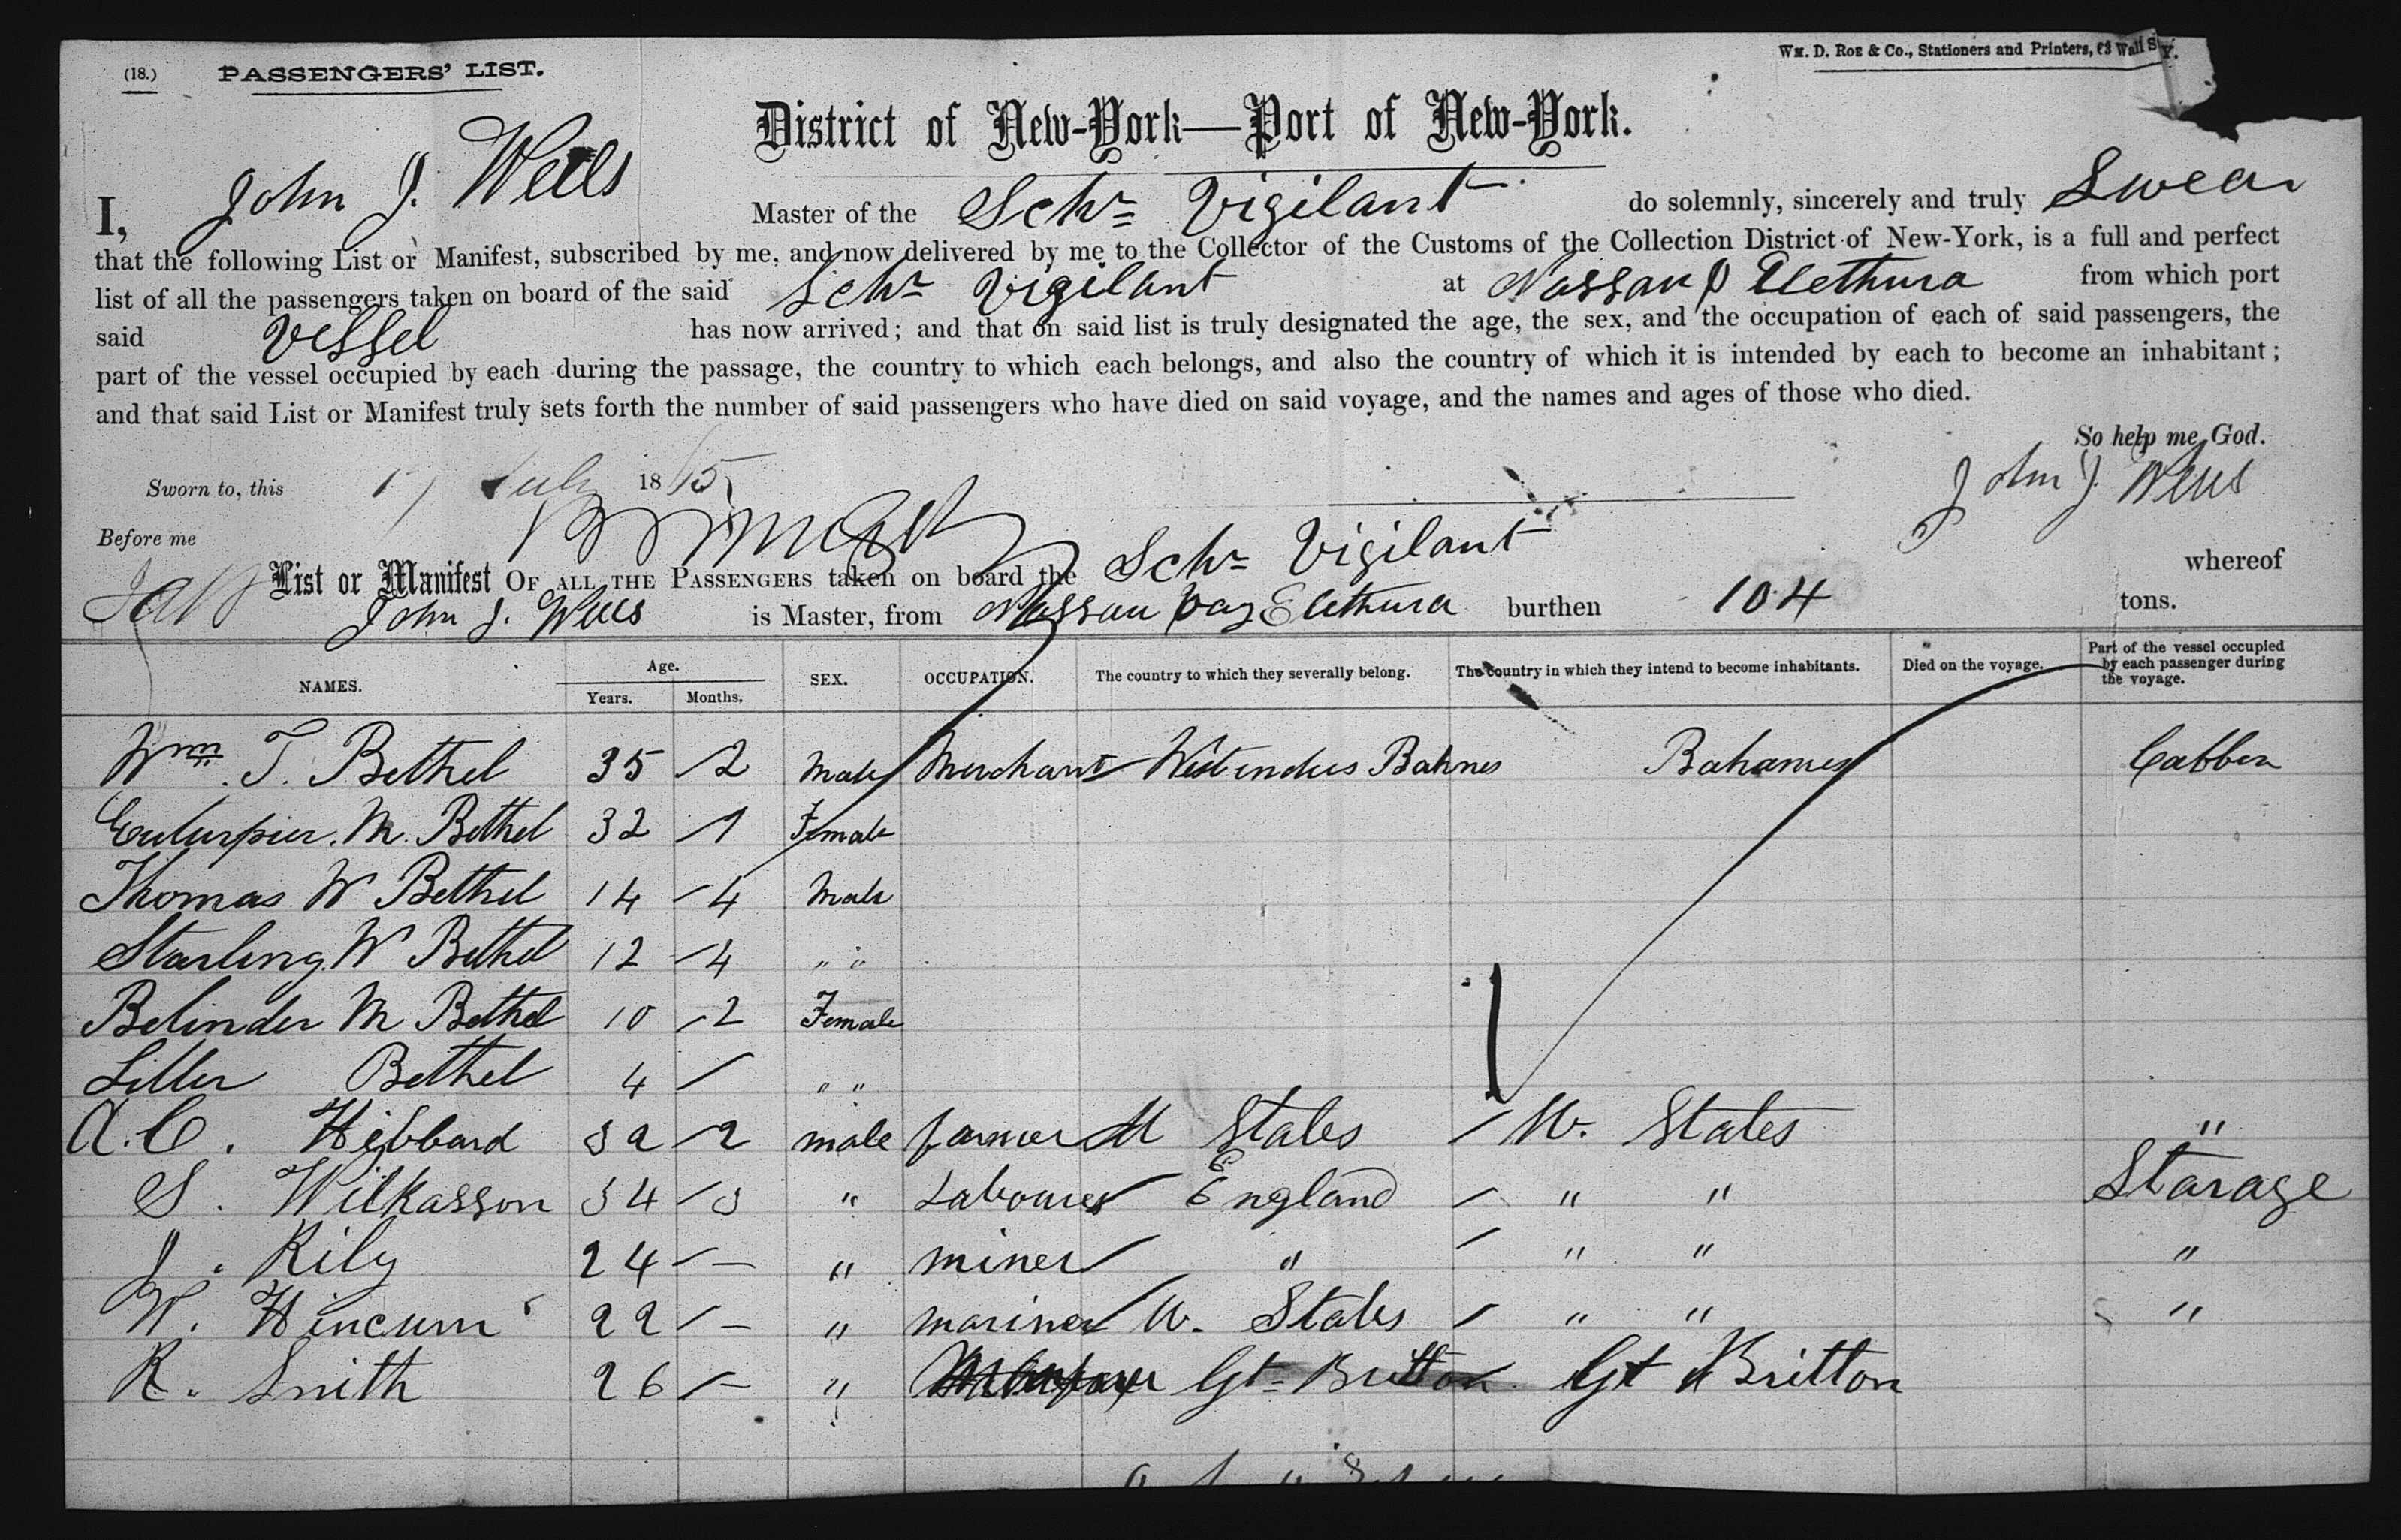 (18.) PASSENGERS' LIST.
Wm. D. Roe & Co., Stationers and Printers, 63 Wall St
District of New-York—Port of New-York.
I, John J. Wells Master of the Schr Vigilant do solemnly, sincerely and truly Swear
that the following List or Manifest, subscribed by me, and now delivered by me to the Collector of the Customs of the Collection District of New-York, is a full and perfect
list of all the passengers taken on board of the said Schr Vigilant at Nassau Elethura from which port
said Vessel has now arrived; and that on said list is truly designated the age, the sex, and the occupation of each of said passengers, the
part of the vessel occupied by each during the passage, the country to which each belongs, and also the country of which it is intended by each to become an inhabitant;
and that said List or Manifest truly sets forth the number of said passengers who have died on said voyage, and the names and ages of those who died.
So help me God.
Sworn to, this July 18 John J. Wells
Before me
List or Manifest OF ALL THE PASSENGERS taken on board the Schr Vigilant whereof
John J. Wells is Master, from Nassau Elethura burthen 104 tons.
NAMES. Age. Years. Months. SEX. OCCUPATION. The country to which they severally belong. The country in which they intend to become inhabitants. Died on the voyage. Part of the vessel occupied by each passenger during the voyage.
Wm. T. Bethel 35 2 Male Merchant West indies Bahames Cabben
M. Bethel 32 1 Female
Thomas W Bethel 14 4 Male
Starling W Bethel 12 4 " "
Belinder M Bethel 10 2 Female
Bethel 4 / " "
A. C. Hibbard 32 2 male farmer U States U. States "
S. Wilkasson 34 3 " Labourer England " " Starage
J. Rily 24 — " miner " " " "
W. Hincum 22 — " mariner U. States " " "
R. Smith 26 — " Gt Britton Gt Britton